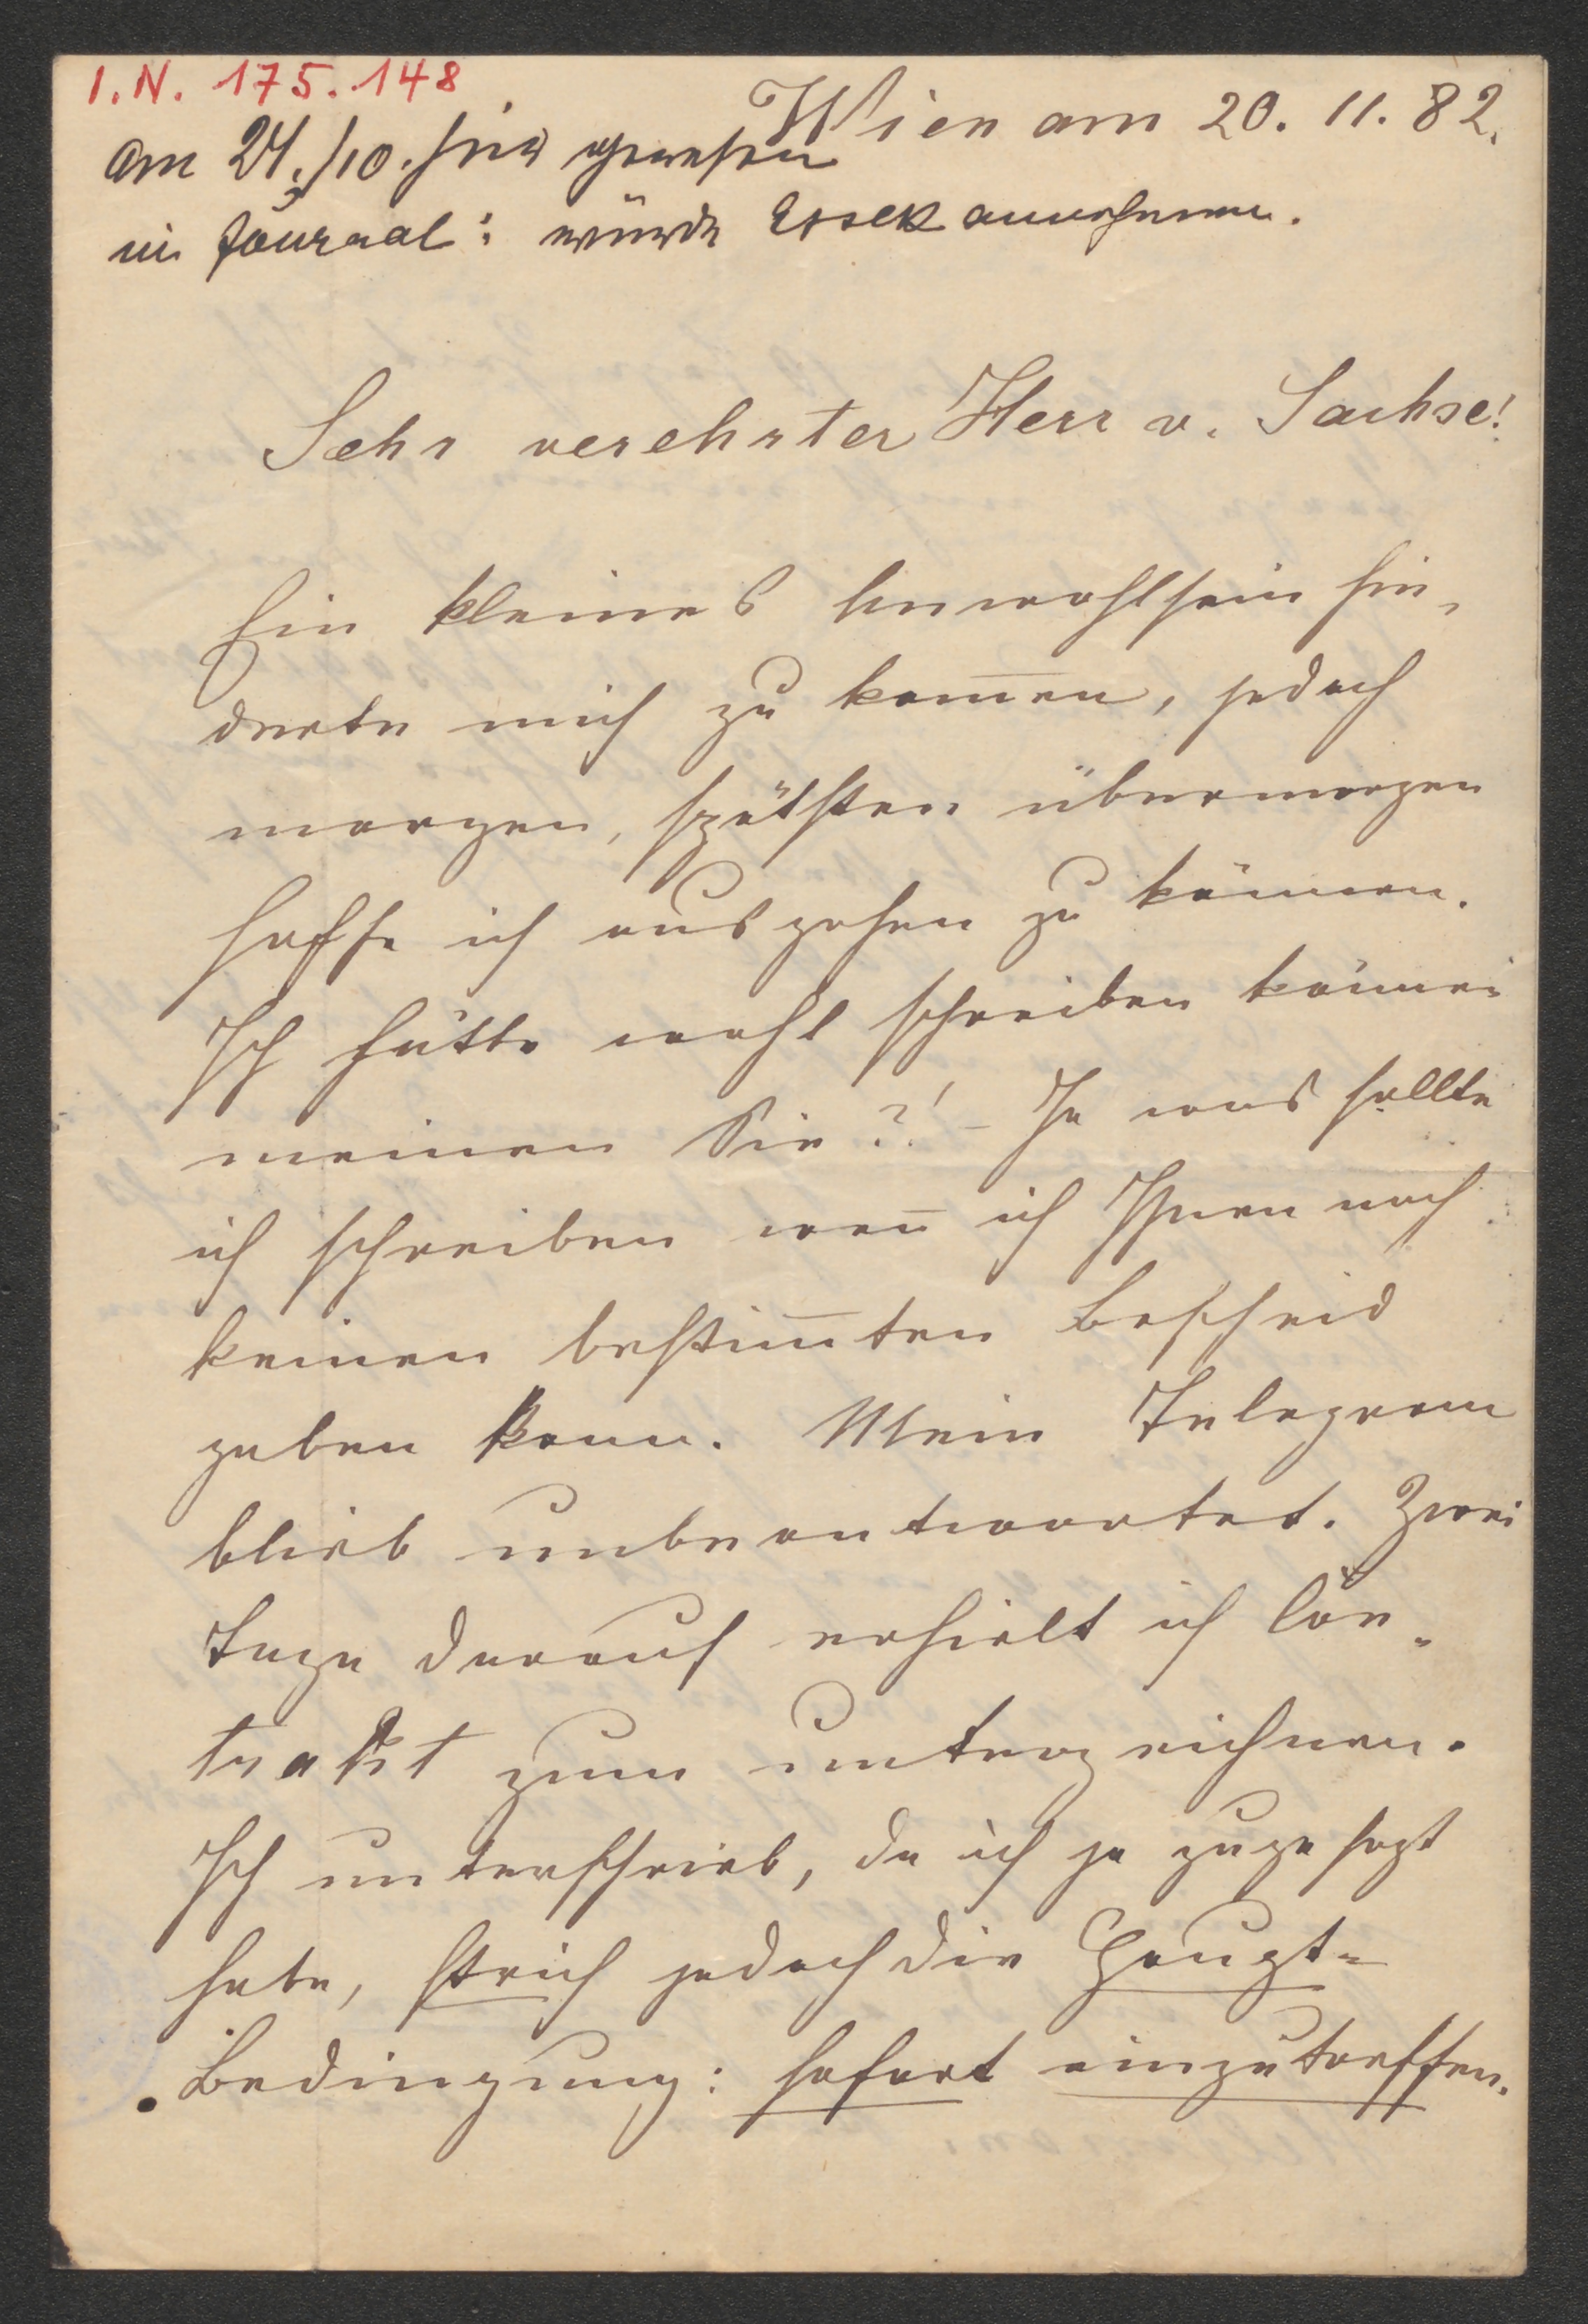 I.N. 175.148
Wien am 20. 11. 82.
am 24./10. hier gewesen
in Journal: würde Essek annehmen.
Sehr verehrter Herr v. Sachse!
Ein kleines Unwohlsein hin-
derte mich zu kom̅en, jedoch
morgen, spätsten übermorgen
hoffe ich ausgehen zu können.
Ich hätte wohl schreiben können
meinen Sie?! – Ja was sollte
ich schreiben wen̅ ich Ihnen noch
keinen bestim̅ten Bescheid
geben kann. Mein Telegram
blieb unbeantwortet. Zwei
Tage darauf erhielt ich Con-
trakt zum unterzeichnen.
Ich unterschrieb, da ich ja zugesagt
habe, strich jedoch die Haupt-
Bedingung: sofort einzutreffen.